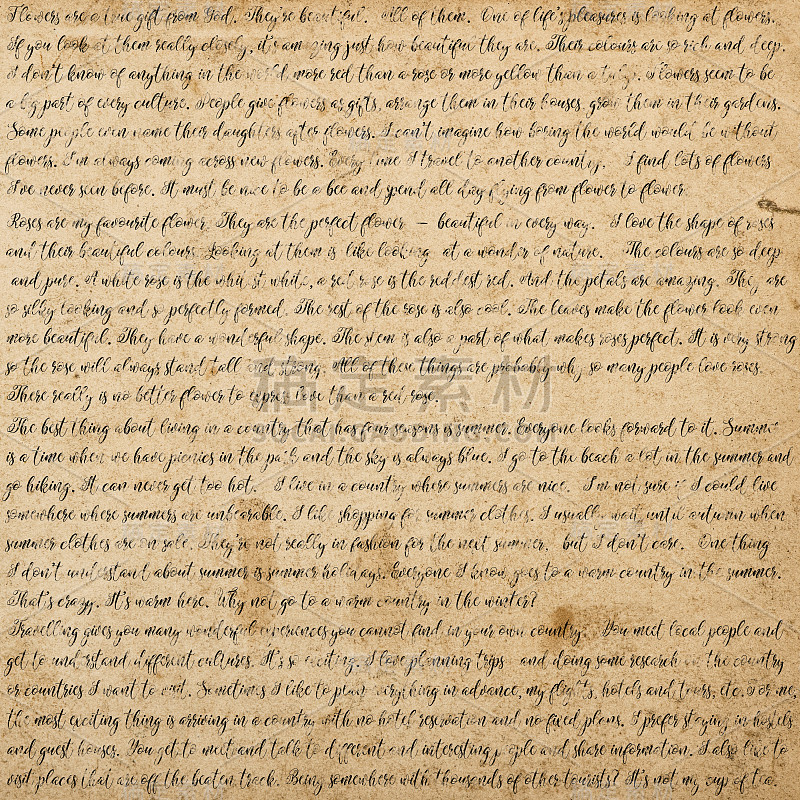 Flowers are a true gift from God. They're beautiful. All of them. One of life's pleasures is looking at flowers.
If you look at them really closely, it's amazing just how beautiful they are. Their colours are so rich and deep.
I don't know of anything in the world more red than a rose or more yellow than a tulip. Flowers seem to be
a big part of every culture. People give flowers as gifts, arrange them in their houses, grow them in their gardens.
Some people even name their daughters after flowers. I can't imagine how boring the world would be without
flowers. I'm always coming across new flowers. Every time I travel to another country, I find lots of flowers
I've never seen before. It must be nice to be a bee and spend all day flying from flower to flower
Roses are my favourite flower. They are the perfect flower – beautiful in every way. I love the shape of roses
and their beautiful colours. Looking at them is like looking at a wonder of nature. The colours are so deep
and pure. A white rose is the whitest white, a red rose is the reddest red. And the petals are amazing. They are
so silky looking and so perfectly formed. The rest of the rose is also cool. The leaves make the flower look even
more beautiful. They have a wonderful shape. The stem is also a part of what makes roses perfect. It is very strong
so the rose will always stand tall and strong. All of these things are probably why so many people love roses.
There really is no better flower to express love than a red rose.
稿定素材
SUCAI.GAODING.COM
The best thing about living in a country that has four seasons is summer. Everyone looks forward to it. Summer
is a time when we have picnics in the park and the sky is always blue. I go to the beach a lot in the summer and
go hiking. It can never get too hot. I live in a country where summers are nice. I'm not sure if I could live
somewhere where summers are unbearable. I like shopping for summer clothes. I usually wait until autumn when
summer clothes are on sale. They're not really in fashion for the next summer, but I don't care. One thing
I don't understant about summer is summer holidays. Everyone I know goes to a warm country in the summer.
That's crazy. It's warm here. Why not go to a warm country in the winter?
Travelling gives you many wonderful experiences you cannot find in your own country. You meet local people and
get to understand different cultures. It's so exciting. I love planning trips and doing some research on the country
or countries I want to visit. Sometimes I like to plan everything in advance, my flights, hotels and tours, etc. For me,
the most exciting thing is arriving in a country with no hotel reservation and no fixed plans. I prefer staying in hostels
and guest houses. You get to meet and talk to different and interesting people and share information. I also like to
visit places that are off the beaten track. Being somewhere with thousands of other tourists? It's not my cup of tea.